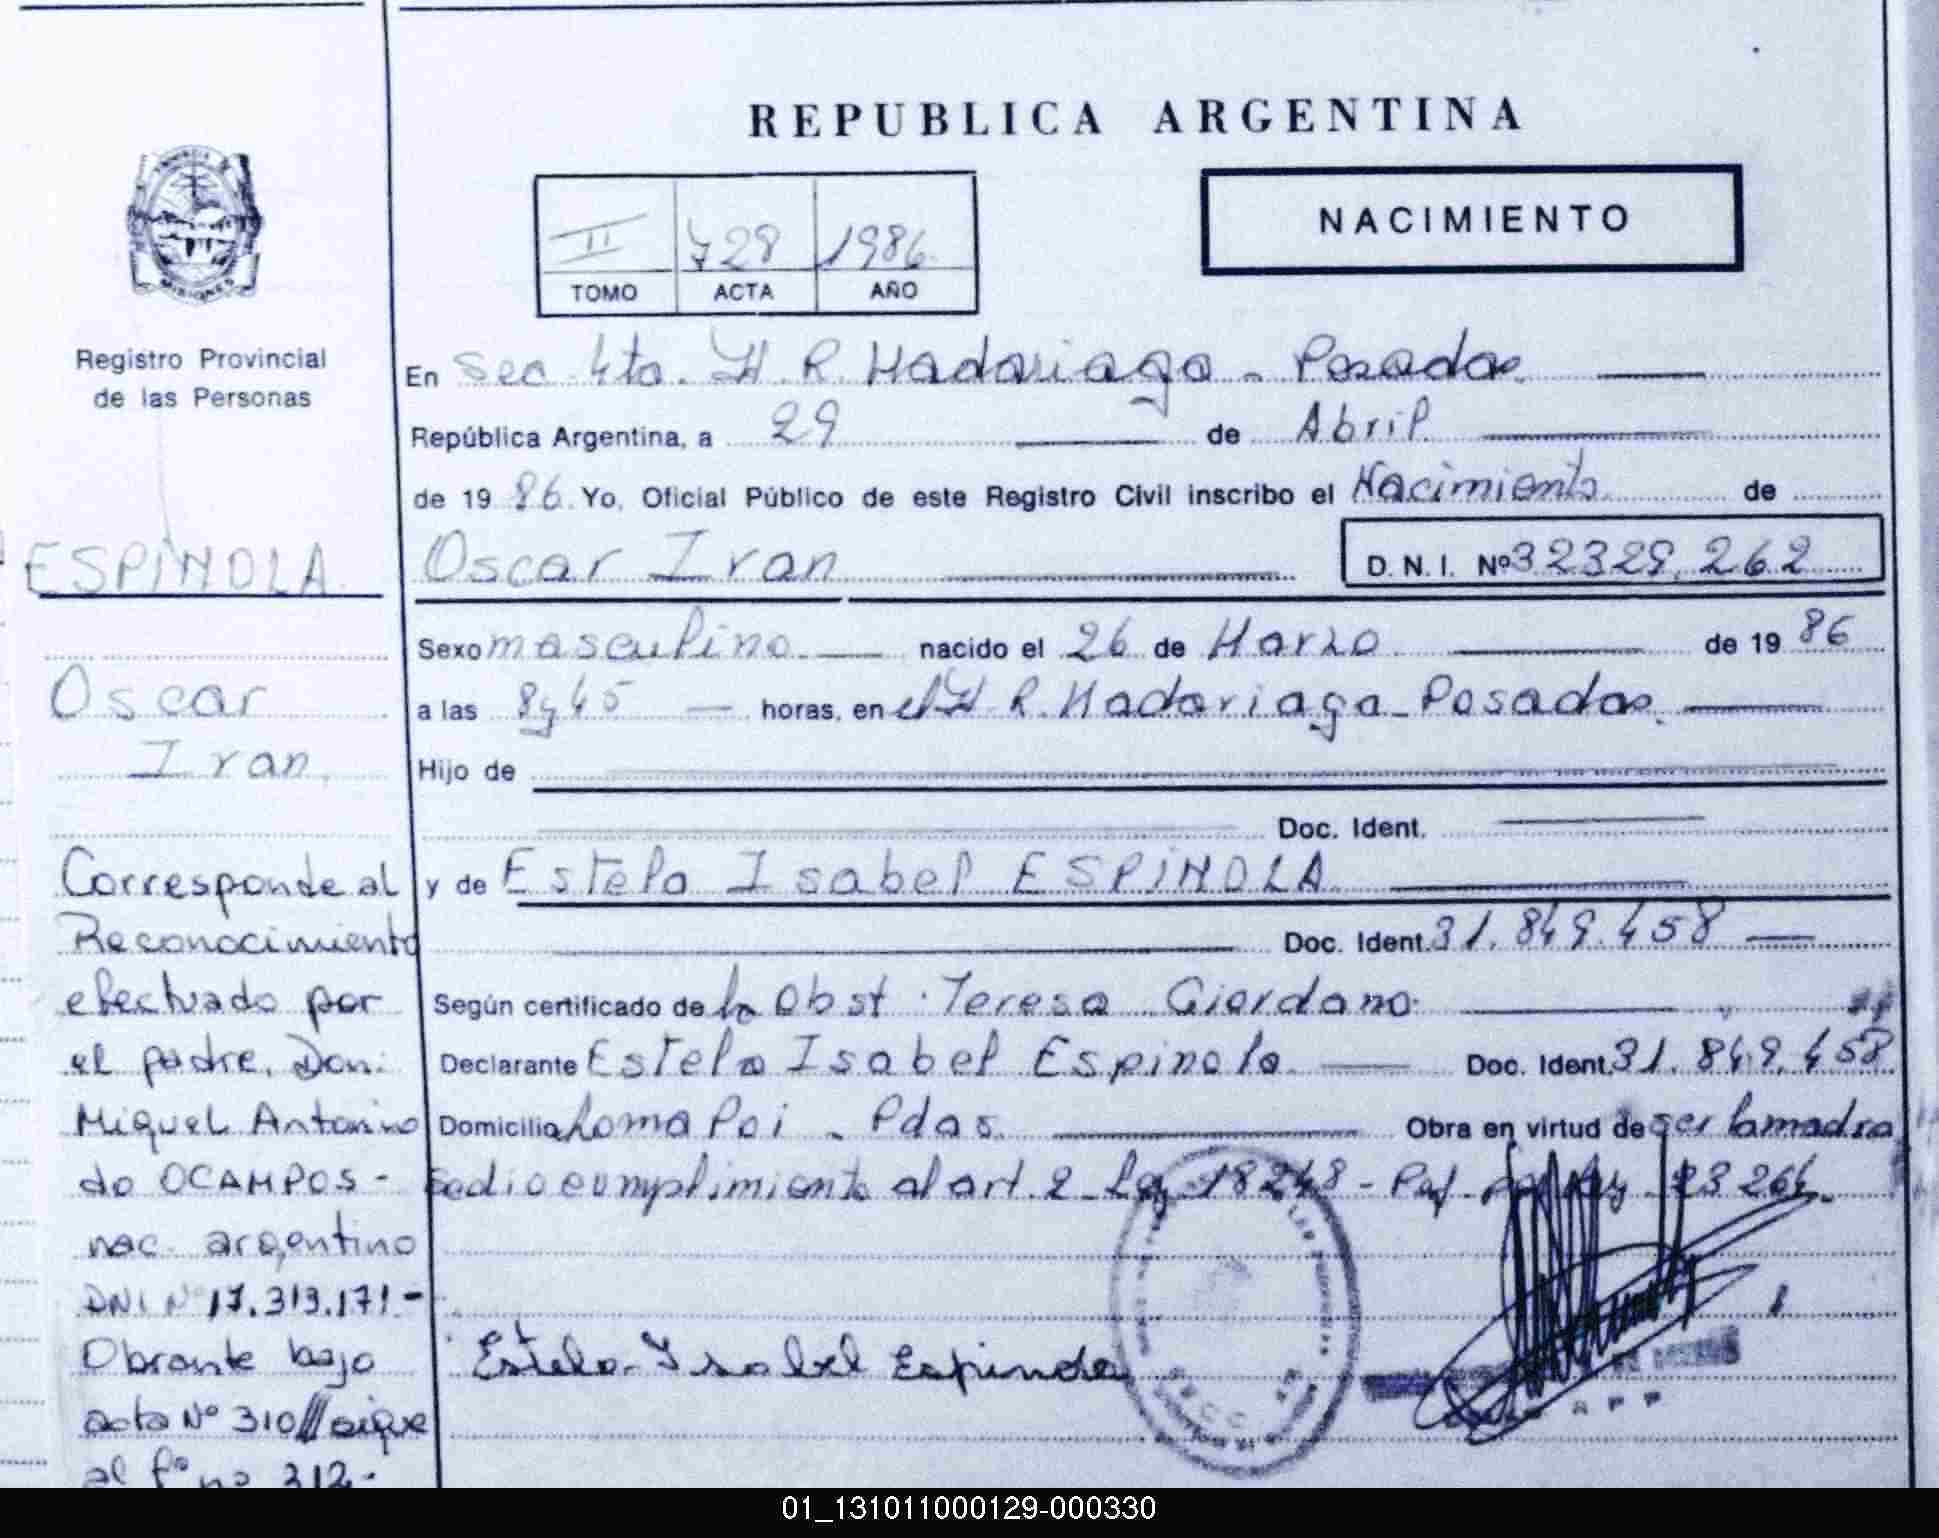 REPUBLICA ARGENTINA
NACIMIENTO
II 728 1986
TOMO ACTA AÑO
MISIONES
Registro Provincial
de las Personas
ESPINOLA
Oscar
Ivan
Corresponde al
Reconocimiento
efectuado por
el padre, Don:
Miguel Antonino
do OCAMPOS -
nac. argentino
DNI Nº 17.313.171 -
Obrante bajo
acta Nº 310 // sigue
al fº nº 312 -
En Sec. 4ta. H. R. Madariaga - Posadas
República Argentina, a 29 de Abril
de 19 86 Yo, Oficial Público de este Registro Civil inscribo el Nacimiento de
Oscar Ivan D. N. I. Nº 32329.262
Sexo masculino nacido el 26 de Marzo de 19 86
a las 8 y 45 horas, en el H R. Madariaga - Posadas
Hijo de
Doc. Ident.
y de Estela Isabel ESPINOLA
Doc. Ident. 31.849.458
Según certificado de la Obst. Teresa Giordano
Declarante Estela Isabel Espinola Doc. Ident. 31.849.458
Domicilio Loma Poi - Pdas. Obra en virtud de ser la madre
se dio cumplimiento al art. 2 - Ley 18248 - 23264
Estela Isabel Espinola
01_131011000129-000330